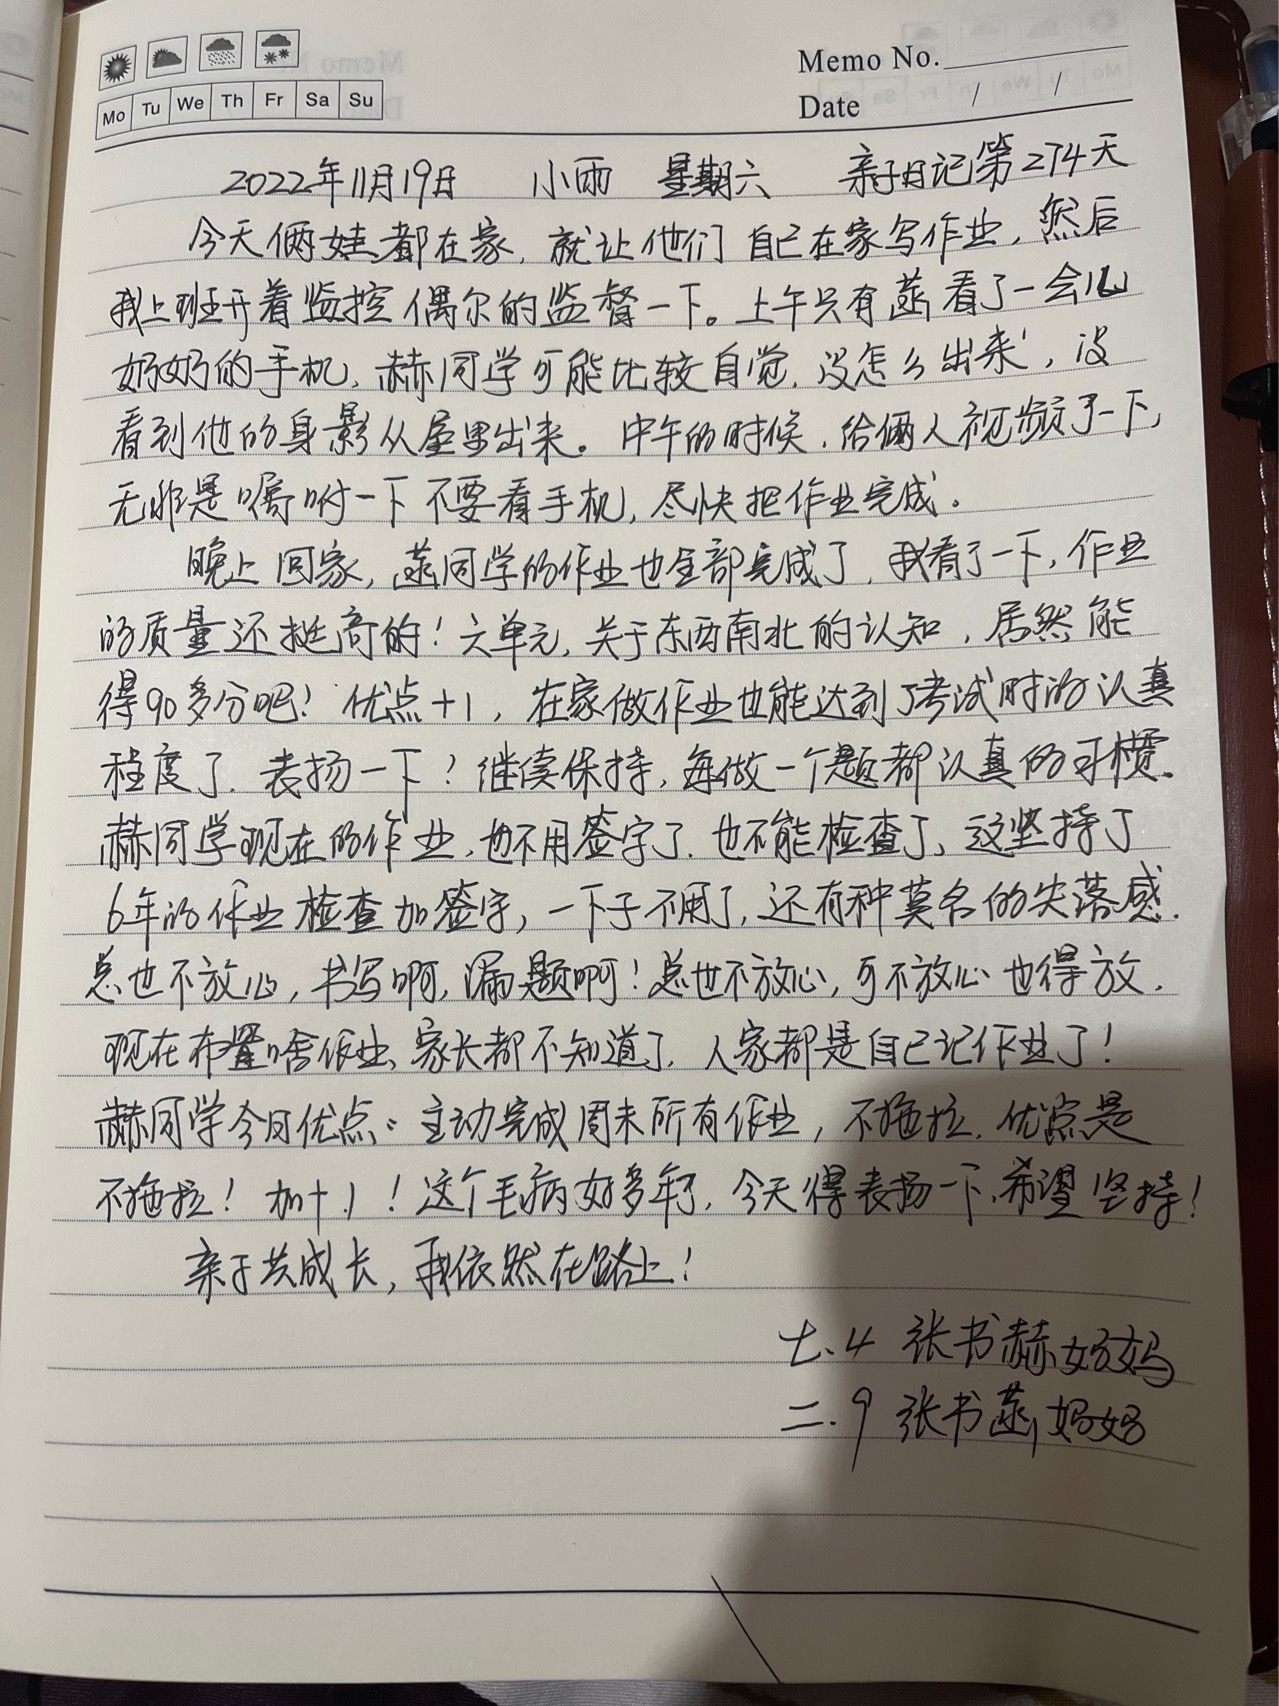 Memo No.
Mo Tu We Th Fr Sa Su
Date / /
2022年11月19日 小雨 星期六 亲子日记第274天
今天俩娃都在家,就让他们自已在家写作业,然后
我上班开着监控偶尔的监督一下。上午只有菡看了一会儿
奶奶的手机,赫同学可能比较自觉,没怎么出来,没
看到他的身影从屋里出来。中午的时候,给俩人视频了一下,
无非是嘱咐一下不要看手机,尽快把作业完成。
晚上回家,菡同学的作业也全部完成了,我看了一下,作业
的质量还挺高的!六单元,关于东西南北的认知,居然能
得90多分吧!优点+1,在家做作业也能达到了考试时的认真
程度了,表扬一下!继续保持,每做一个题都认真的习惯。
赫同学现在的作业,也不用签字了,也不能检查了,这坚持了
6年的作业检查加签字,一下子不用了,还有种莫名的失落感.
总也不放心,书写啊,漏题啊!总也不放心,可不放心也得放.
现在布置啥作业,家长都不知道了,人家都是自己记作业了!
赫同学今日优点:主动完成周末所有作业,不拖拉,优点是
不拖拉!加十1!这个毛病好多年了,今天得表扬一下,希望坚持!
亲子共成长,我依然在路上!
七.4 张书赫妈妈
二.9 张书菡妈妈